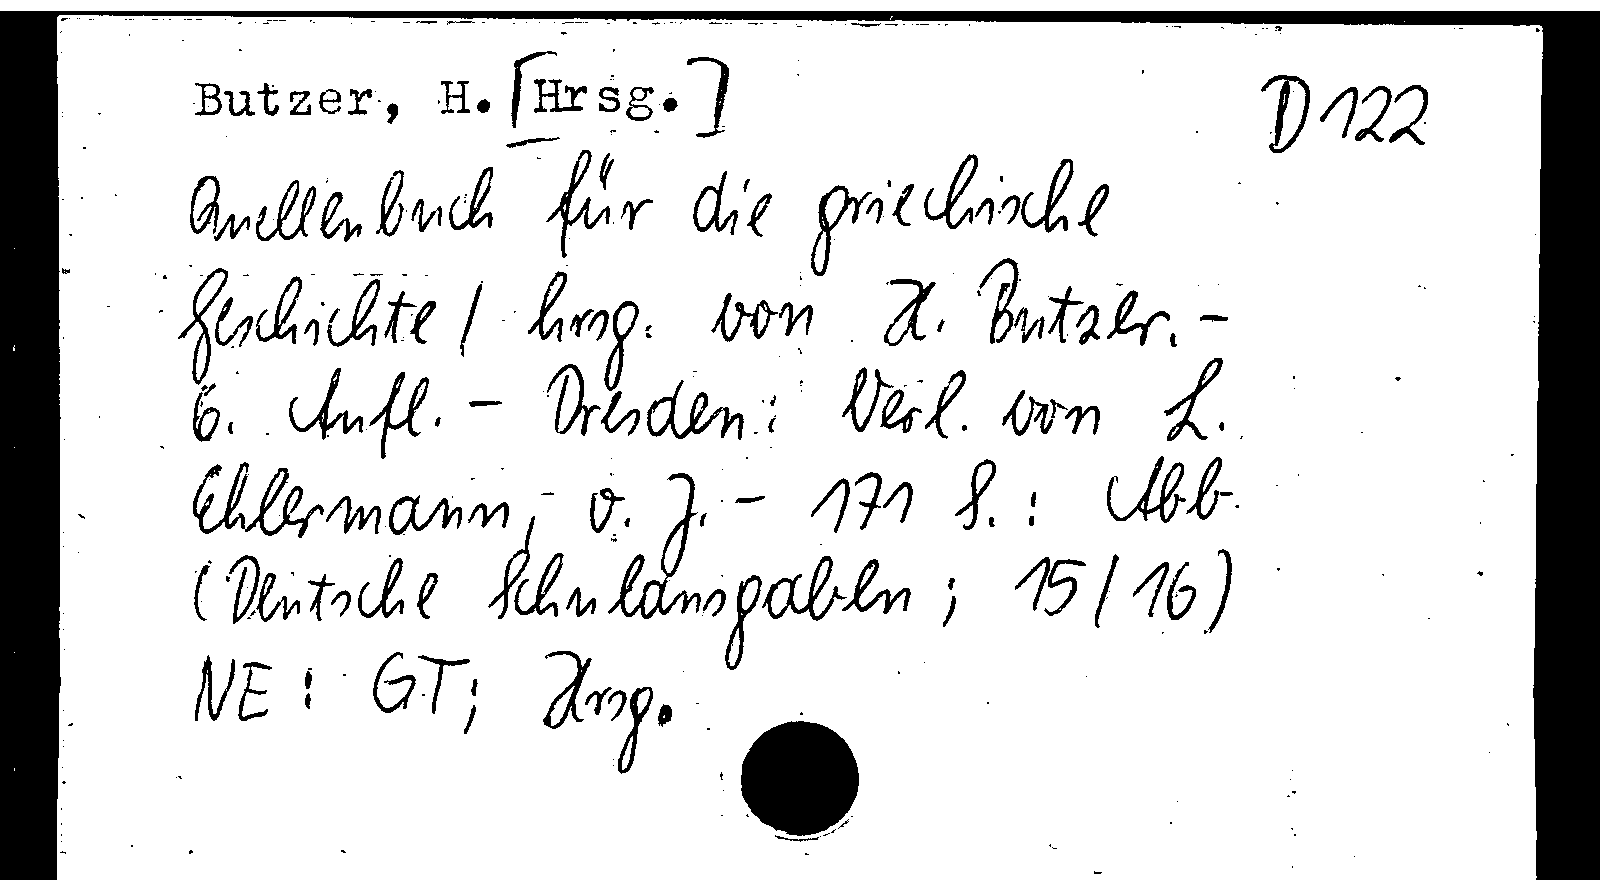 Butzer, H. [Hrsg.]
D 122
Quellenbuch für die griechische
Geschichte / hrsg. von H. Butzer. -
6. Aufl. - Dresden: Verl. von L.
Ehlermann, o. J. - 171 S. : Abb.
(Deutsche Schulausgaben ; 15/16)
NE : GT; Hrsg.